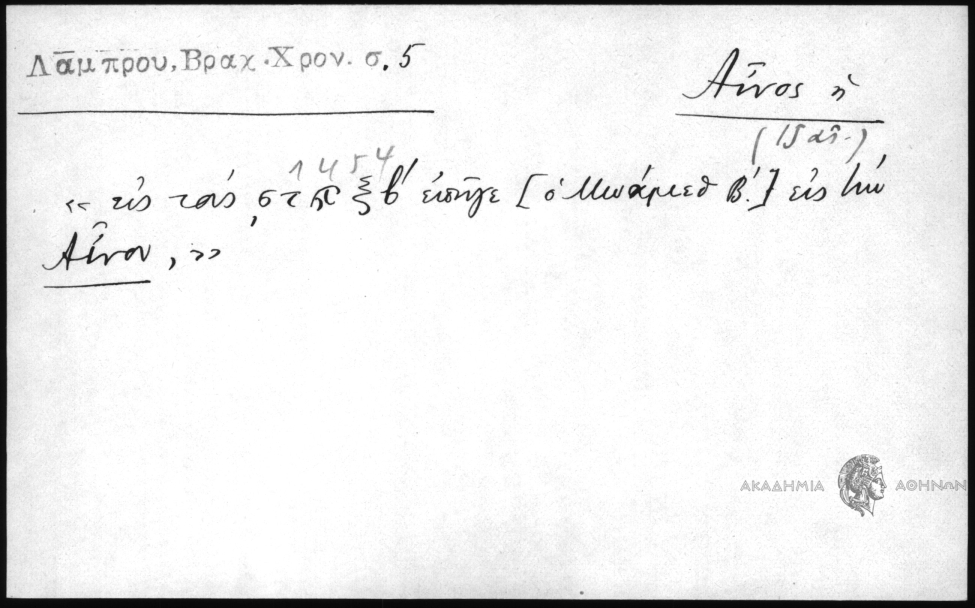 Λάμπρου, Βραχ. Χρον. σ. 5
Αἶνος ἡ
(15 αἰ.)
1454
« εἰς τοὺς ͵ςτϡξβ΄ ἐπῆγε [ὁ Μωάμεθ Β΄.] εἰς τὴν
Αἶνον, »
ΑΚΑΔΗΜΙΑ ΑΘΗΝΩΝ